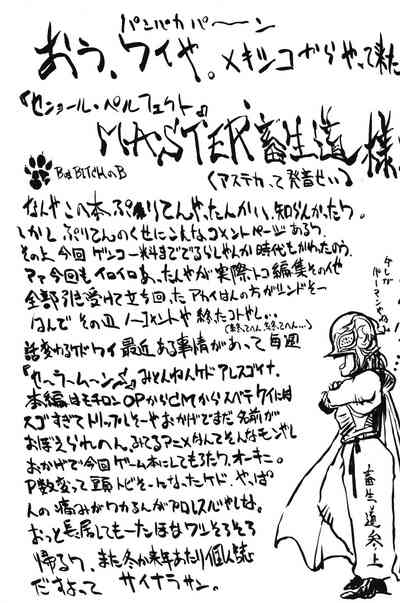 パンパカパーン
おう、ワイや。メキシコからやって来た
『センョール・ペルフェクト』
MASTER畜生道様
BはBITCHのB
(アステカって発音せい)
なんやこの本、ぷりてんやったんかい、知らんかったワ。
しかしぷりてんのくせにこんなコメントページあるワ、
その上今回ゲンコー料まででるらしやんか時代もかわたのう.
マァ今回もイロイロあったんやが実際トコ編集その他
全部引き受けて立ち回ったアカイはんの方がシンドそー
なんでその辺ノーコメントや 終たコトやし...
(終ってへん、終ってへん…)
話変わるケドワイ最近ある事情があって毎週
『セーラームーン』みとんねんケドアレスゴイナ、
本編はモチロンOPからCMからスベテワイには
スゴすぎてトリップしそーやおかげでまだ名前が
おぼえられのん、みてるアニメなんてそんなモンやし
おかげで今回ゲーム本にしてもろたワ、オーキニ。
P数変って頭トビそーんなったケド、やっぱ
人の痛みがワかるんがプロレスらやしな。
おっと長居してもーたほなワシそろそろ
帰るワ、また冬か来年あたり個人誌
だすよって サイナラサン。
畜生道参上